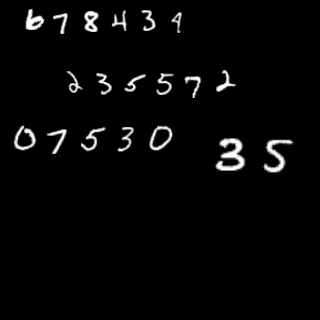 678439
235572
07530
35